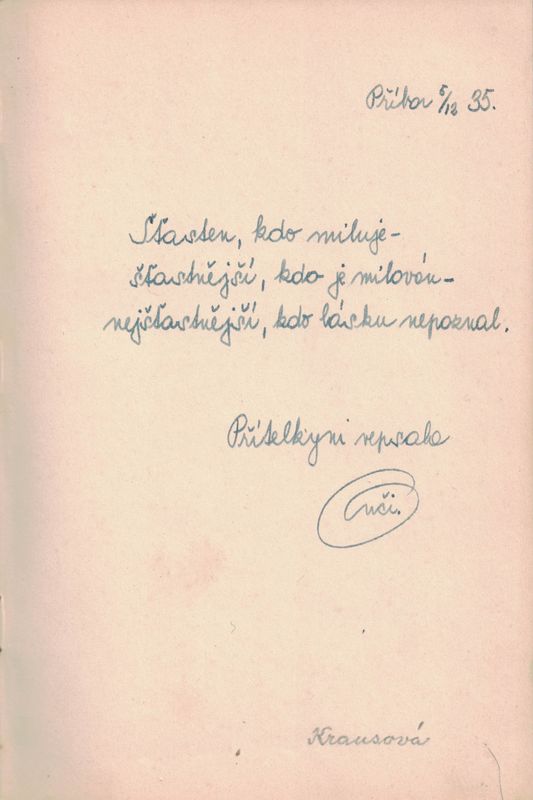 Příbor 5/12 35.
Šťasten, kdo miluje-
šťastnější, kdo je milován-
nejšťastnější, kdo lásku nepoznal.
Přítelkyni vepsala
Krausová